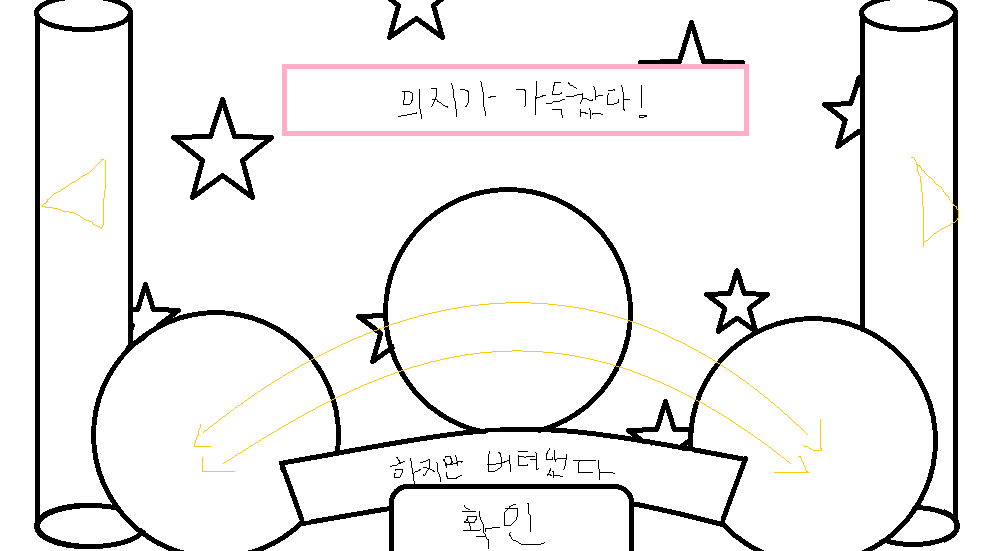 의지가 가득찼다!
하지만 버텨냈다
확인